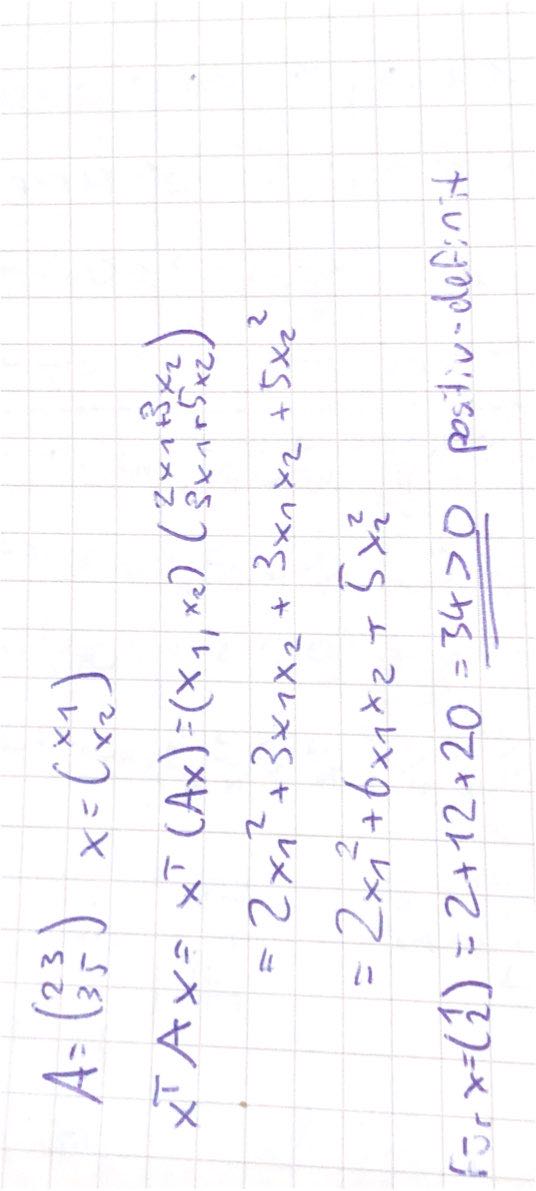 A = (2 3
3 5) x = (x1
x2)
xᵀ A x = xᵀ (Ax) = (x₁, x₂) (2x1+3x₂
3x1+5x2)
= 2x₁² + 3x₁x₂ + 3x₁x₂ + 5x₂²
= 2x₁² + 6x₁x₂ + 5x₂²
Für x=(1
2) = 2+12+20 = 34 > 0 positiv-definit